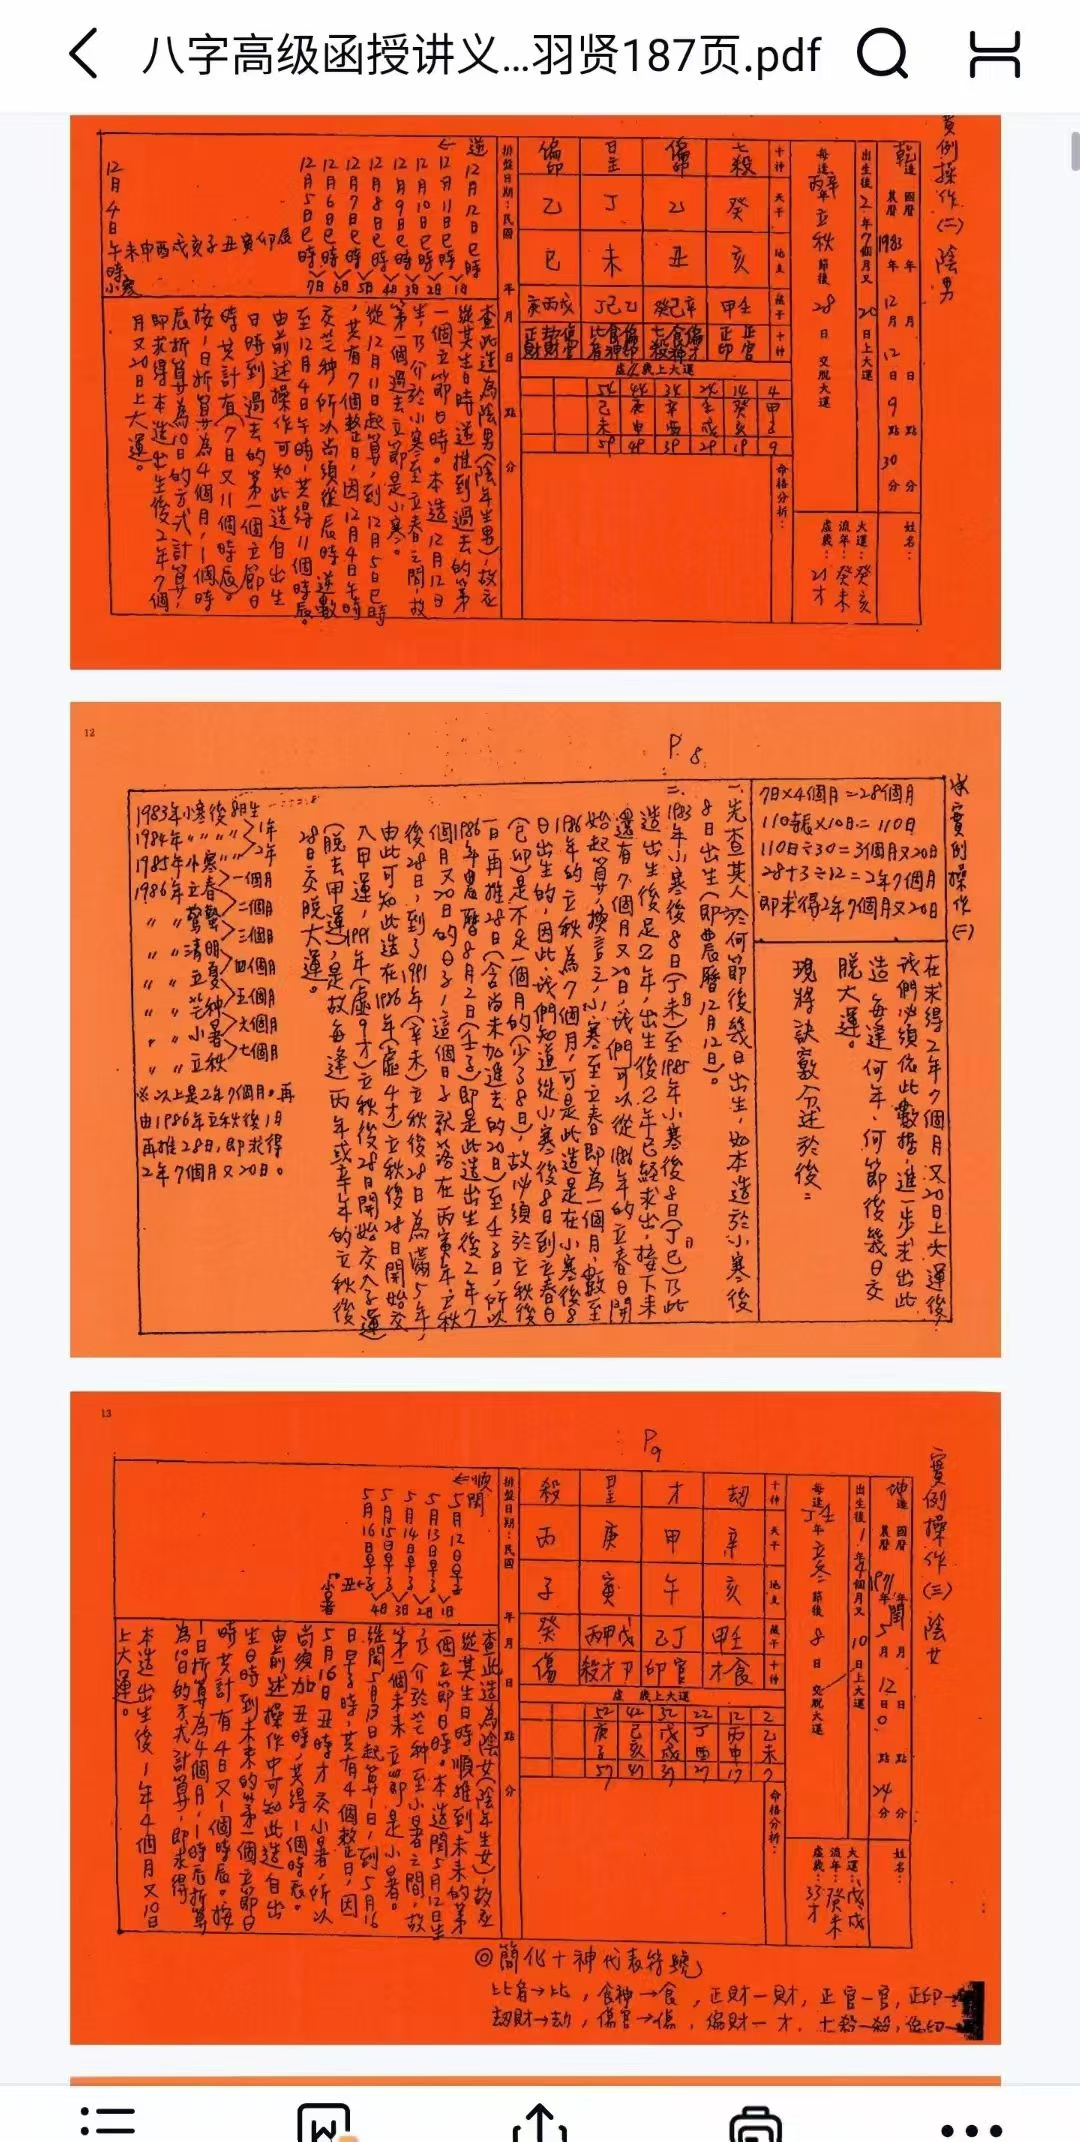 八字高级函授讲义...羽贤187页.pdf
實例操作(二)陰男
乾造
國曆 年 月 日 點 分
農曆1983年12月12日9點30分
姓名：
出生後2年7個月又20日上大運
每逢丙辛年立秋節後28日交脫大運
大運：癸亥
流年：癸未
虛歲：21才
十神 七殺 偏印 日主 偏印
天干 癸 乙 丁 乙
地支 亥 丑 未 巳
藏干 甲壬 癸己辛 丁己乙 庚丙戊
十神
虛4歲上大運
4 14 24 34 44 54
甲子 癸亥 壬戌 辛酉 庚申 己未
9 19 29 39 49 59
命格分析：
排盤日期：民國 年 月 日 點 分
逆
12月12日巳時
12月11日巳時
12月10日巳時
12月9日巳時
12月8日巳時
12月7日巳時
12月6日巳時
12月5日巳時
1日
2日
3日
4日
5日
6日
7日
12月4日午時小寒
午未申酉戌亥子丑寅卯辰
查此造為陰男(陰年生男)，故應
從其生日時逆推到過去的第
一個立節日時。本造12月12日
生，乃介於小寒至立春之間，故
第一個過去立節即是小寒。
從12月11日起算，到12月5日巳時
，共有7個整日，因12月4日午時
交芒种所以尚須從辰時逆數
至12月4日午時，共得11個時辰。
由前述操作可知此造自出生
日時到過去的第一個立節日
時共計有(7日又11個時辰)。
按1日折算為4個月，1個時
辰折算為10日的方式計算，
即求得本造出生後2年7個
月又20日上大運。
12
P.8
承實例操作(二)
7日×4個月=28個月
11時辰×10日=110日
110日÷30=3個月又20日
28+3÷12=2年7個月
即求得2年7個月又20日
在求得2年7個月又20日上大運後，
我們必須依此數據，進一步求出此
造每逢何年、何節後幾日交
脫大運。
現將訣竅分述於後：
一、先查其人於何節後幾日出生，如本造於小寒後
8日出生(即農曆12月12日)。
二、1983年小寒後8日(丁未日)至1985年小寒後8日(丁巳日)乃此
造出生後足2年，出生後2年已經求出，接下來
還有7個月又20日，我們可以從1986年的立春日開
始起算，換言之，小寒至立春即為一個月，數至
1986年的立秋為7個月，可是此造是在小寒後8
日出生的，因此我們知道從小寒後8日到立春日
是不足一個月的(少了8日)，故必須於立秋後
一日再推28日(含尚未加進去的20日)至壬子日，所以
1986年農曆8月2日(壬子)即是此造出生後2年7
個月又20日的日子，這個日子就落在丙寅年立秋
後28日，到了1991年(辛未)立秋後28日為滿5年，
由此可知此造在1986年(虛4才)立秋後28日開始交
入甲運，1991年(虛9才)立秋後28日開始交入子運
(脫去甲運)，是故每逢丙年或辛年的立秋後
28日交脫大運。
1983年小寒後8日生
1984年〃〃〃
1985年小寒
1986年立春
〃 驚蟄
〃 清明
〃 立夏
〃 芒种
〃 小暑
〃 立秋
1年
2年
一個月
二個月
三個月
四個月
五個月
六個月
七個月
※以上是2年7個月。再
由1986年立秋後1日
再推28日，即求得
2年7個月又20日。
13
P9
實例操作(三)陰女
坤造
國曆 年 月 日 點 分
農曆1971年閏5月12日0點24分
姓名：
出生後1年4個月又10日上大運
每逢丁壬年立冬節後8日交脫大運
大運：戊戌
流年：癸未
虛歲：33才
十神 劫 才 日主 殺
天干 辛 甲 庚 丙
地支 亥 午 寅 子
藏干 甲壬 己丁 丙甲戊 癸
十神 才食 印官 殺才卩 傷
虛 歲上大運
2 12 22 32 42 52
乙未 丙申 丁酉 戊戌 己亥 庚子
7 17 27 37 47 57
命格分析：
排盤日期：民國 年 月 日 點 分
順
閏5月12日早子
5月13日早子
5月14日早子
5月15日早子
5月16日早子
1日
2日
3日
4日
丑
小暑
查此造為陰女(陰年生女)，故應
從其生日時順推到未來的第
一個立節日時。本造閏5月12日生
，乃介於芒种至小暑之間，故
第一個未來立節即是小暑。
從閏5月13日起算1日，到5月16
日早子時，共有4個整日，因
5月16日丑時才交小暑，所以
尚須加丑時，共得1個時辰。
由前述操作中可知此造自出
生日時到未來的第一個立節日
時共計有4日又1個時辰。按
1日折算為4個月，1時辰折算
為10日的方式計算，即求得
本造出生後1年4個月又10日
上大運。
◎簡化十神代表符號
比肩→比，食神→食，正財→財，正官→官，正印→
劫財→劫，傷官→傷，偏財→才，七殺→殺，偏印→